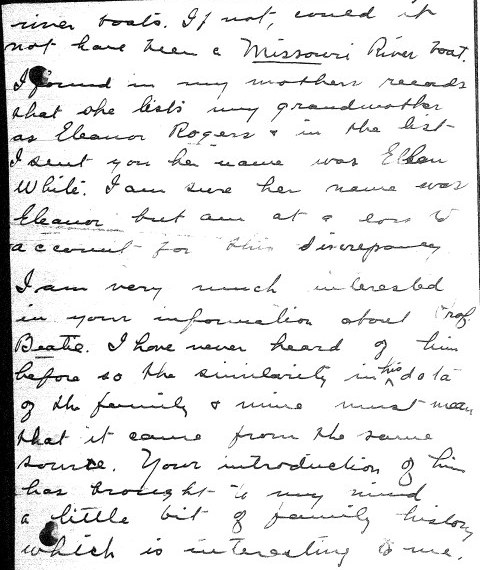 river boats. If not, could it
not have been a Missouri River boat.
I found in my mothers records
that she lists my grandmother
as Eleanor Rogers & in the list
I sent you her name was Ellen
White. I am sure her name was
Eleanor but am at a loss to
account for this discrepancy
I am very much interested
in your information about Prof.
Beatie. I have never heard of him
before so the similarity in his data
of the family & mine must mean
that it came from the same
source. Your introduction of him
has brought to my mind
a little bit of family history
which is interesting to me.